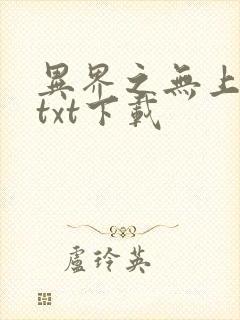 異界之無上
txt下載
盧玲英